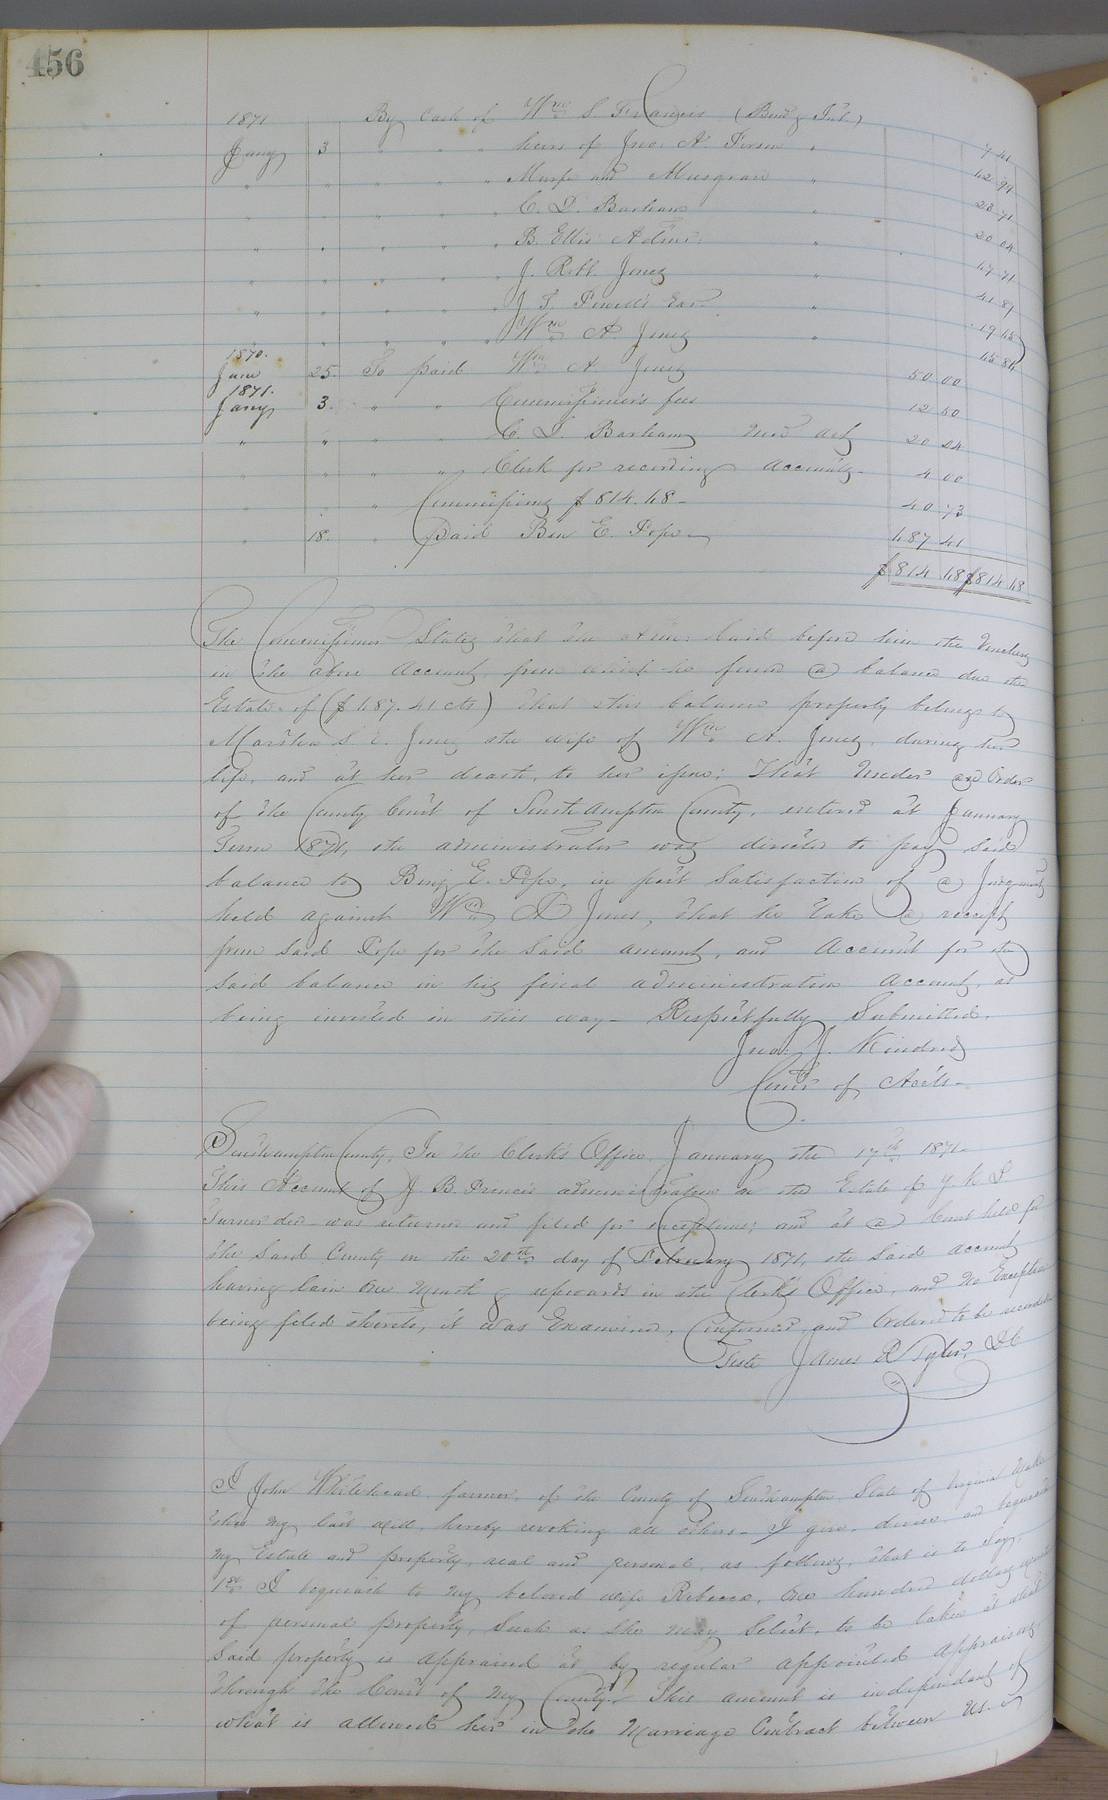 456
1871 By Cash of Wm S Francis (Bond & Int.)
Jany 3 " " " heirs of Jno. A. " 7 41
" " " " " and Musgrave " 42 99
" " " " " C. D. Barham " 23 71
" " " " " B. Ellis Admr. " 20 04
" " " " " J. Robt. Jones " 47 71
" " " " " J T Powell's Exr " 41 89
" " " " " Wm A. Jones " 19 45
1870. 45 84
June 25. To paid Wm A Jones 50 00
1871.
Jany 3. " " Commissioner's fees 12 50
" " " " C. D. Barham 20 04
" " " " Clerk for recording Accounts 4 00
" " " Commissions $814.48 - 40 73
" 18. " Paid Ben E. Pope 487 41
$814 48 $814 48
The Commissioner States that the Admr. laid before him the Vouchers
in the above Account, from which he finds a balance due the
Estate of ($487.41 cts) That this balance properly belongs to
Martha S. E. Jones the wife of Wm A. Jones, during her
life, and at her death, to her issue; That Under an Order
of the County Court of Southampton County, entered at January
Term 1871, the administrator was directed to pay said
balance to Benj E. Pope, in part Satisfaction of a Judgment
held against Wm A Jones, that he take a receipt
from said Pope for the said amount, and Account for the
said balance in his final administration Account, as
being invested in this way - Respectfully Submitted.
Jno. J. Kindred
Comr of Accts -
Southampton County, In the Clerk's Office January the 17th 1871.
This Account of J B. Francis administrator on the Estate of
Turner decd was returned and filed for exceptions; and at a Court held for
the Said County on the 20th day of February 1871, the Said account
having lain One Month & upwards in the Clerk's Office, and No Exception
being filed thereto, it was Examined, Confirmed and Ordered to be recorded
Teste James R Tyler, DC
I John Whitehead farmer, of the County of Southampton State of Virginia Make
this my last will, hereby revoking all others - I give, devise, and bequeath
my Estate and property, real and personal, as follows, that is to Say,
1st I bequeath to my beloved wife Rebecca, One hundred dollars
of personal property, Such as She may Select, to be taken at what
said property is appraised at by regular appointed appraisers,
through the Court of my County. This amount is independent of
what is allowed her in the Marriage Contract between us.